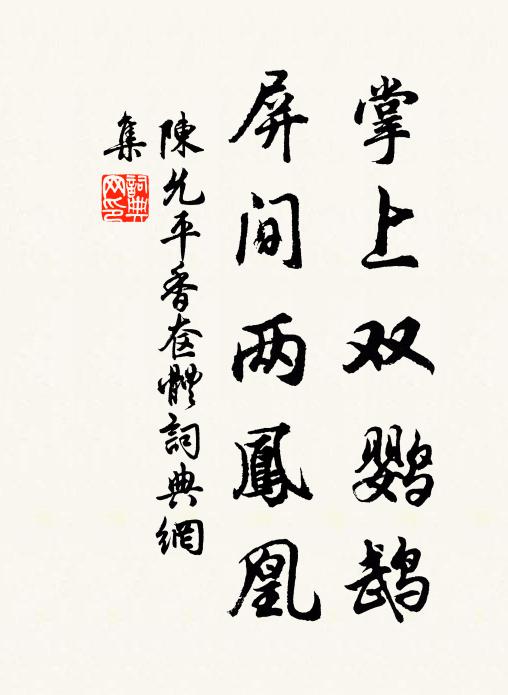 掌上双鹦鹉
屏间两鳳凰
陳允平香奩體詞典網
集
詞典
网印